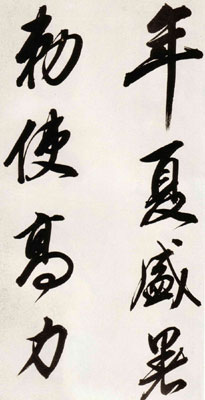 年夏盛暑
勅使高力